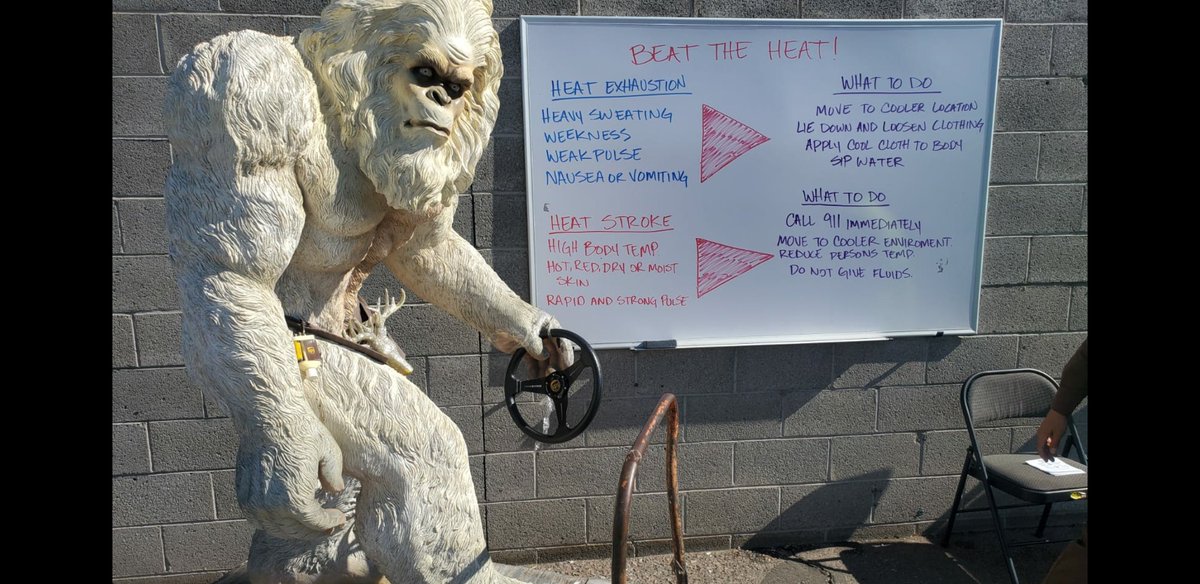 BEAT THE HEAT!
HEAT EXHAUSTION
HEAVY SWEATING
WEEKNESS
WEAK PULSE
NAUSEA OR VOMITING
WHAT TO DO
MOVE TO COOLER LOCATION
LIE DOWN AND LOOSEN CLOTHING
APPLY COOL CLOTH TO BODY
SIP WATER
HEAT STROKE
HIGH BODY TEMP.
HOT, RED, DRY OR MOIST
SKIN
RAPID AND STRONG PULSE
WHAT TO DO
CALL 911 IMMEDIATELY
MOVE TO COOLER ENVIROMENT.
REDUCE PERSONS TEMP.
DO NOT GIVE FLUIDS.